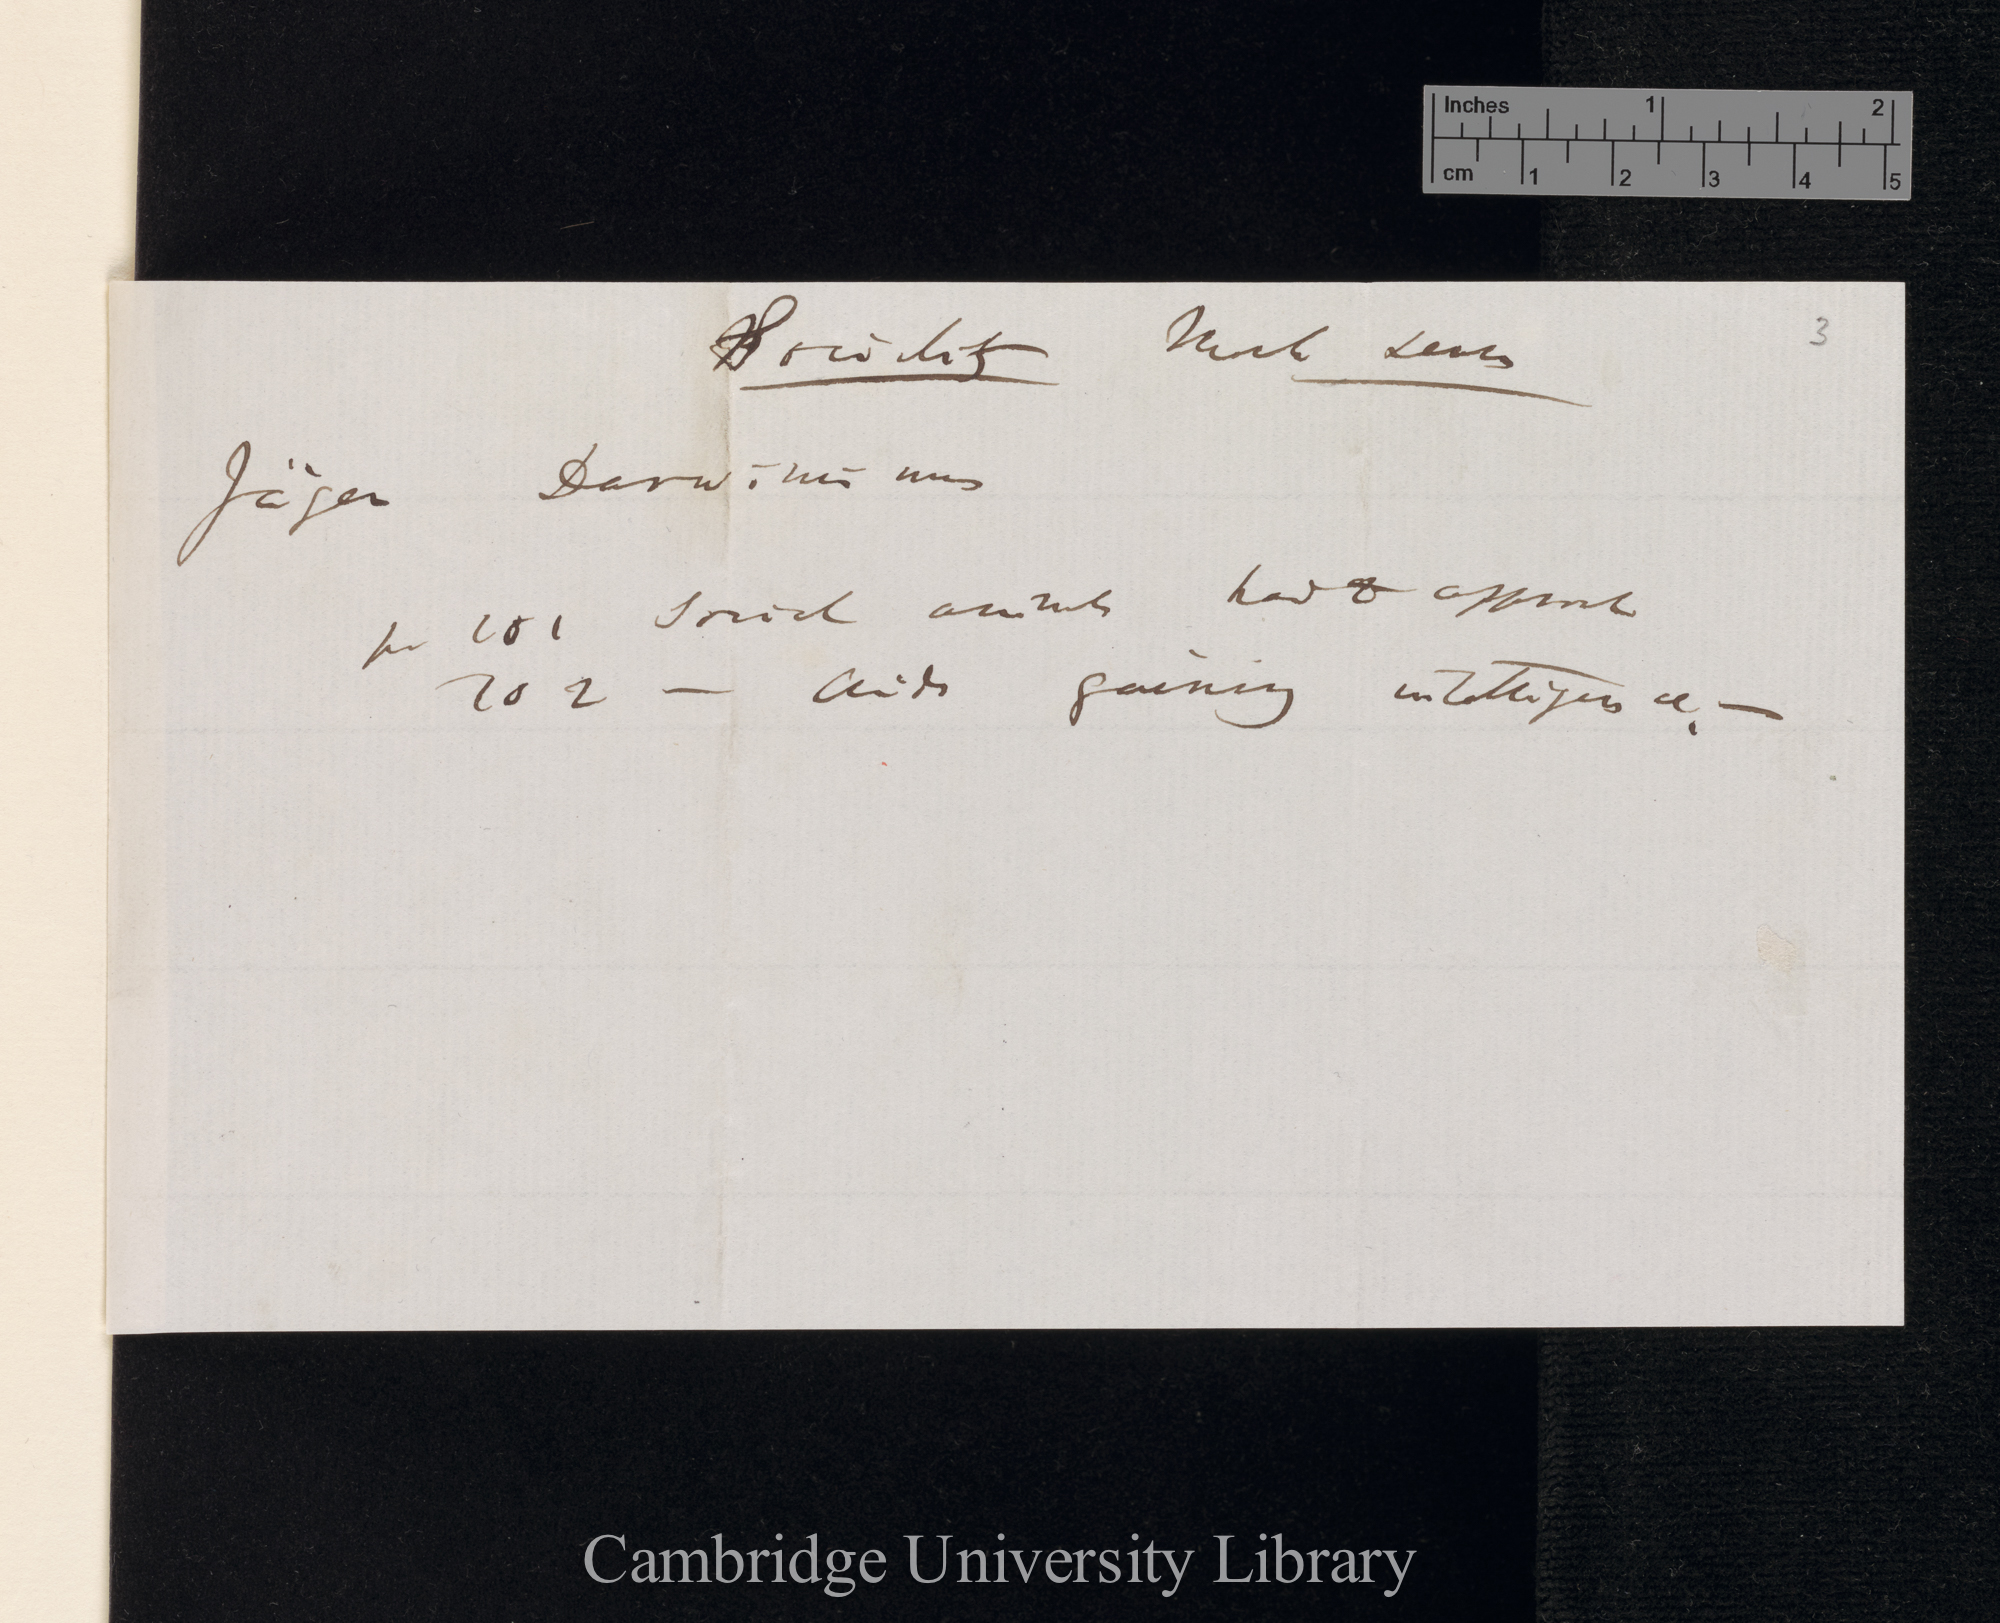 Inches 1 2
cm 1 2 3 4 5
3
Sociability Moral sense
Jäger Darwinismus
p 101 Social animals hard to approach
102 — aids gaining intelligence. —
Cambridge University Library